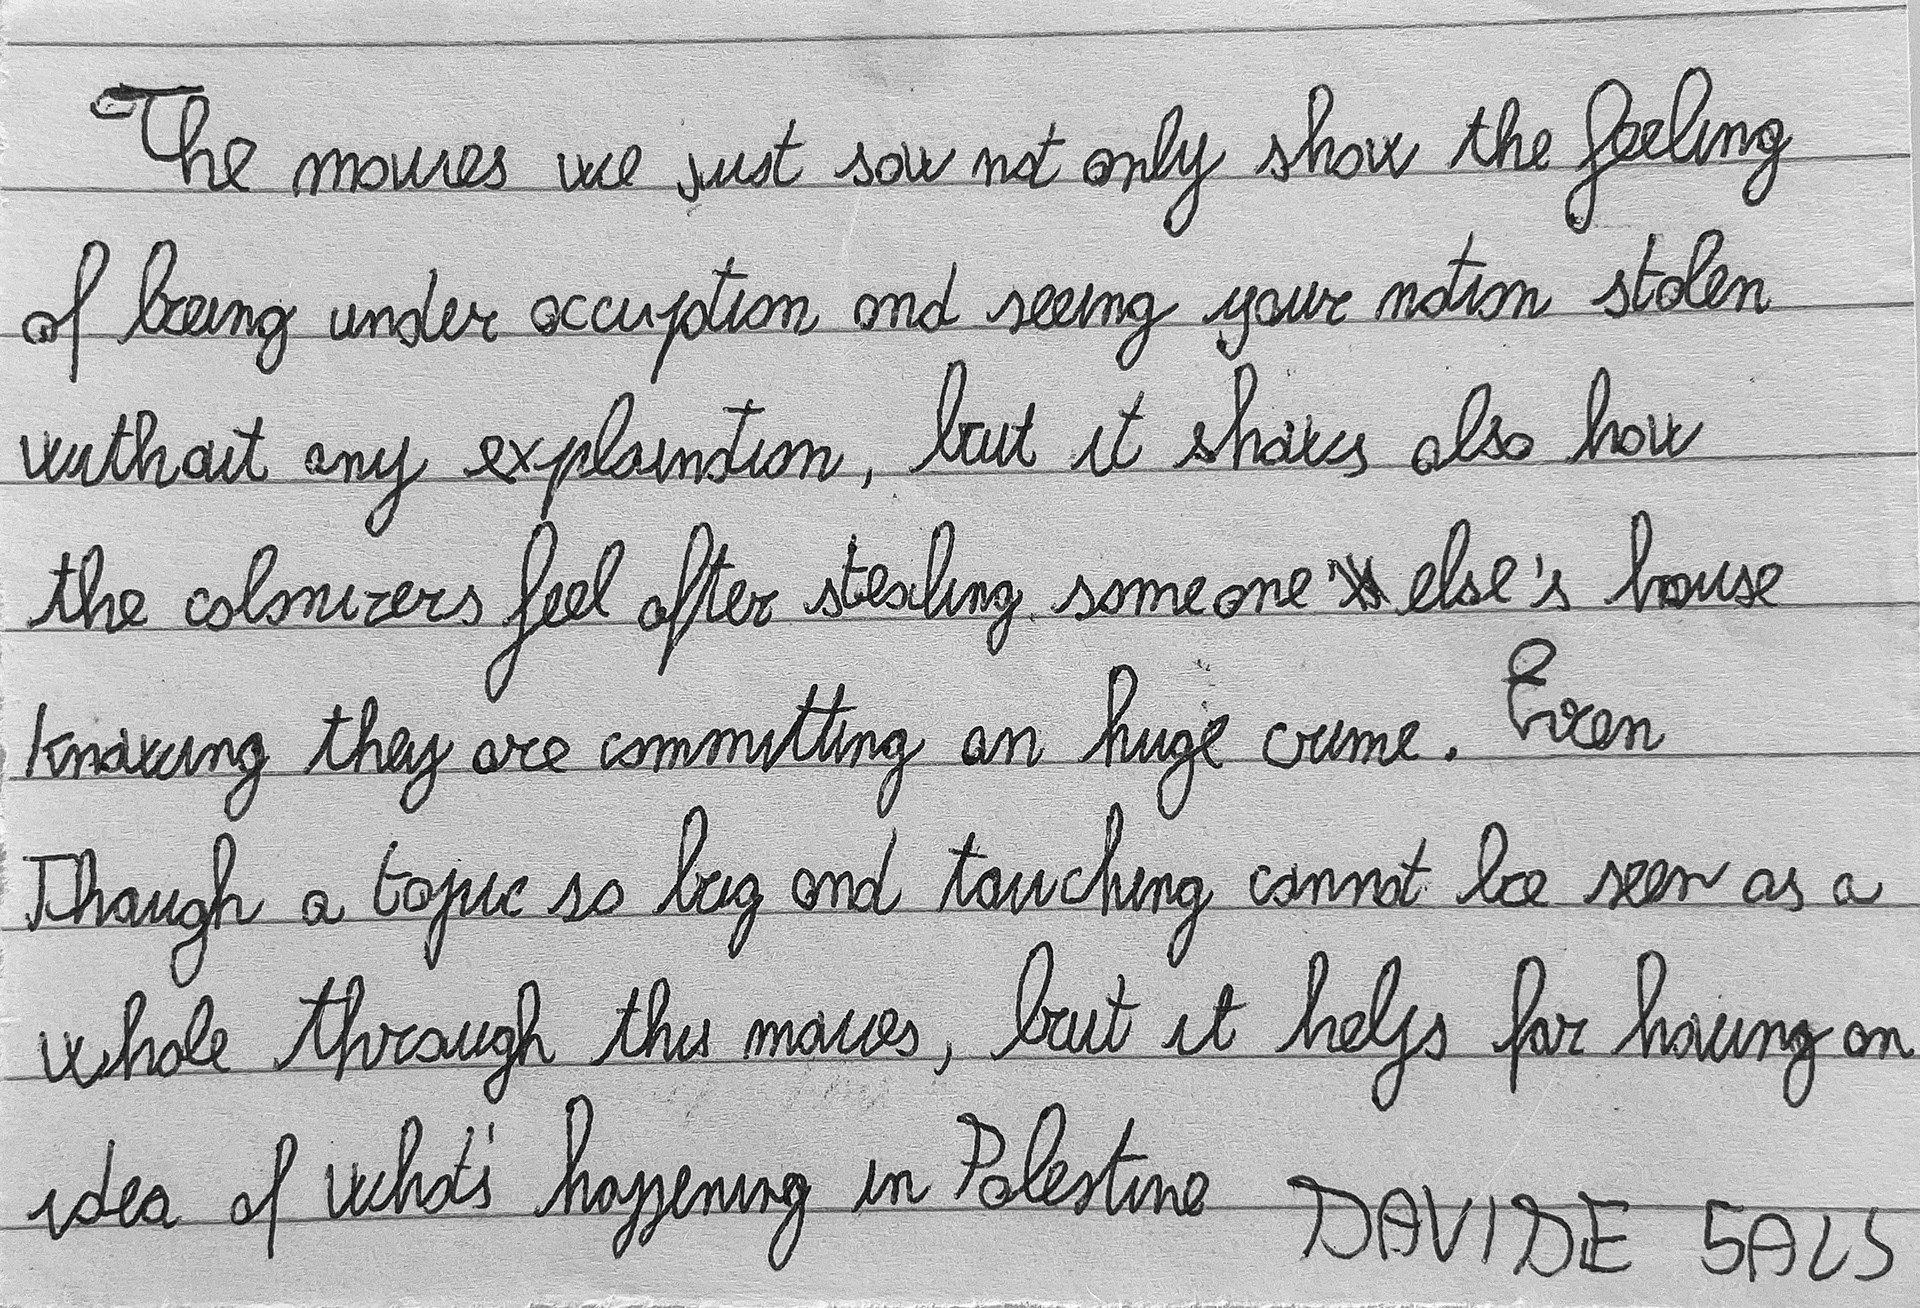 The movies we just saw not only show the feeling
of being under occuption and seeing your nation stolen
without any explaination, but it shows also how
the colonizers feel after stealing someone else's house
knowing they are committing an huge crime. Even
Though a topic so big and touching cannot be seen as a
whole through this movies, but it helps for having an
idea of what's happening in Palestine DAVIDE 5ALS